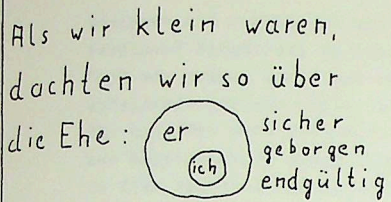 Als wir klein waren,
dachten wir so über
die Ehe: er sicher
ich geborgen
endgültig